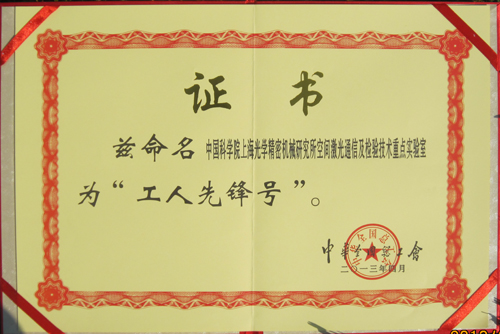 证书
兹命名 中国科学院上海光学精密机械研究所空间激光通信及检验技术重点实验室
为“工人先锋号”。
中华全国总工会
二〇一三年四月